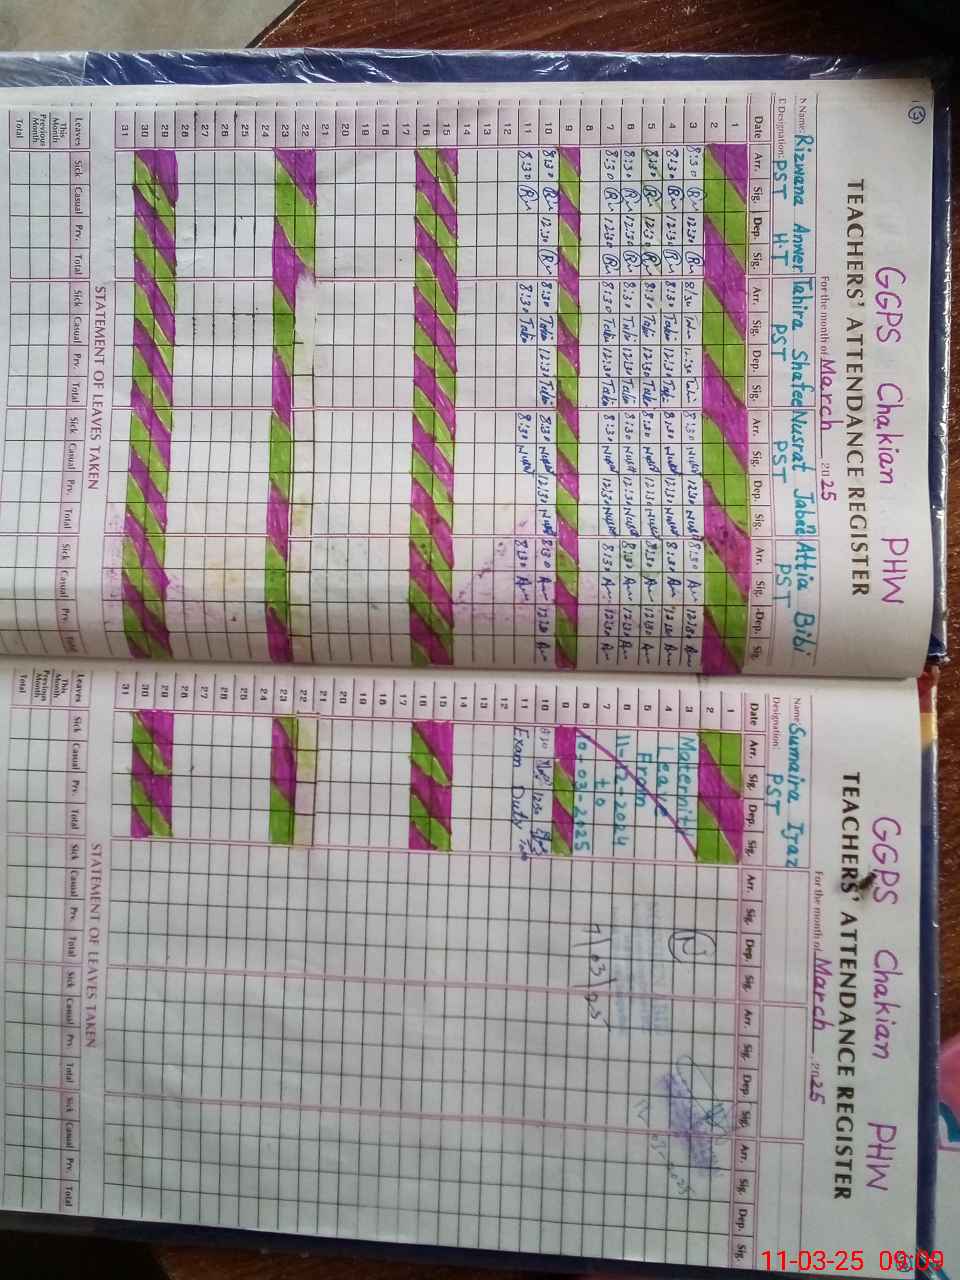 13
GGPS Chakian PHW
TEACHERS' ATTENDANCE REGISTER
For the month of March 2025
Name: Rizwana Anwer Tahira Shafee Nusrat Jabeen Attia Bibi
Designation: PST H.T PST PST PST
Date Arr. Sig. Dep. Sig. Arr. Sig. Dep. Sig. Arr. Sig. Dep. Sig. Arr. Sig. Dep. Sig.
1
2
3 8:30 12:30 8:30 12:30 8:30 12:30 8:30 12:30
4 8:30 12:30 8:30 12:30 8:30 12:30 8:30 12:30
5 8:30 12:30 8:30 12:30 8:30 12:30 8:30 12:30
6 8:30 12:30 8:30 12:30 8:30 12:30 8:30 12:30
7 8:30 12:30 8:30 12:30 8:30 12:30 8:30 12:30
8
9
10 8:30 12:30 8:30 12:30 8:30 12:30 8:30 12:30
11 8:30 8:30 8:30 8:30
12
13
14
15
16
17
18
19
20
21
22
23
24
25
26
27
28
29
30
31
STATEMENT OF LEAVES TAKEN
Leaves Sick Casual Prv. Total Sick Casual Prv. Total Sick Casual Prv. Total Sick Casual Prv. Total
This Month
Previous Month
Total
GGPS Chakian PHW
TEACHERS' ATTENDANCE REGISTER
For the month of March, 2025
Name: Sumaira Ijaz
Designation: PST
Date Arr. Sig. Dep. Sig. Arr. Sig. Dep. Sig. Arr. Sig. Dep. Sig. Arr. Sig. Dep. Sig.
1
2
3 Maternity
4 Leave
5 From
6 11-12-2024
7 to
8 10-03-2025
9
10 8:30 12:30
11 Exam Duty
12
13
14
15
16
17
18
19
20
21
22
23
24
25
26
27
28
29
30
31
7/03/25
STATEMENT OF LEAVES TAKEN
Leaves Sick Casual Prv. Total Sick Casual Prv. Total Sick Casual Prv. Total Sick Casual Prv. Total
This Month
Previous Month
Total
11-03-25 09:09